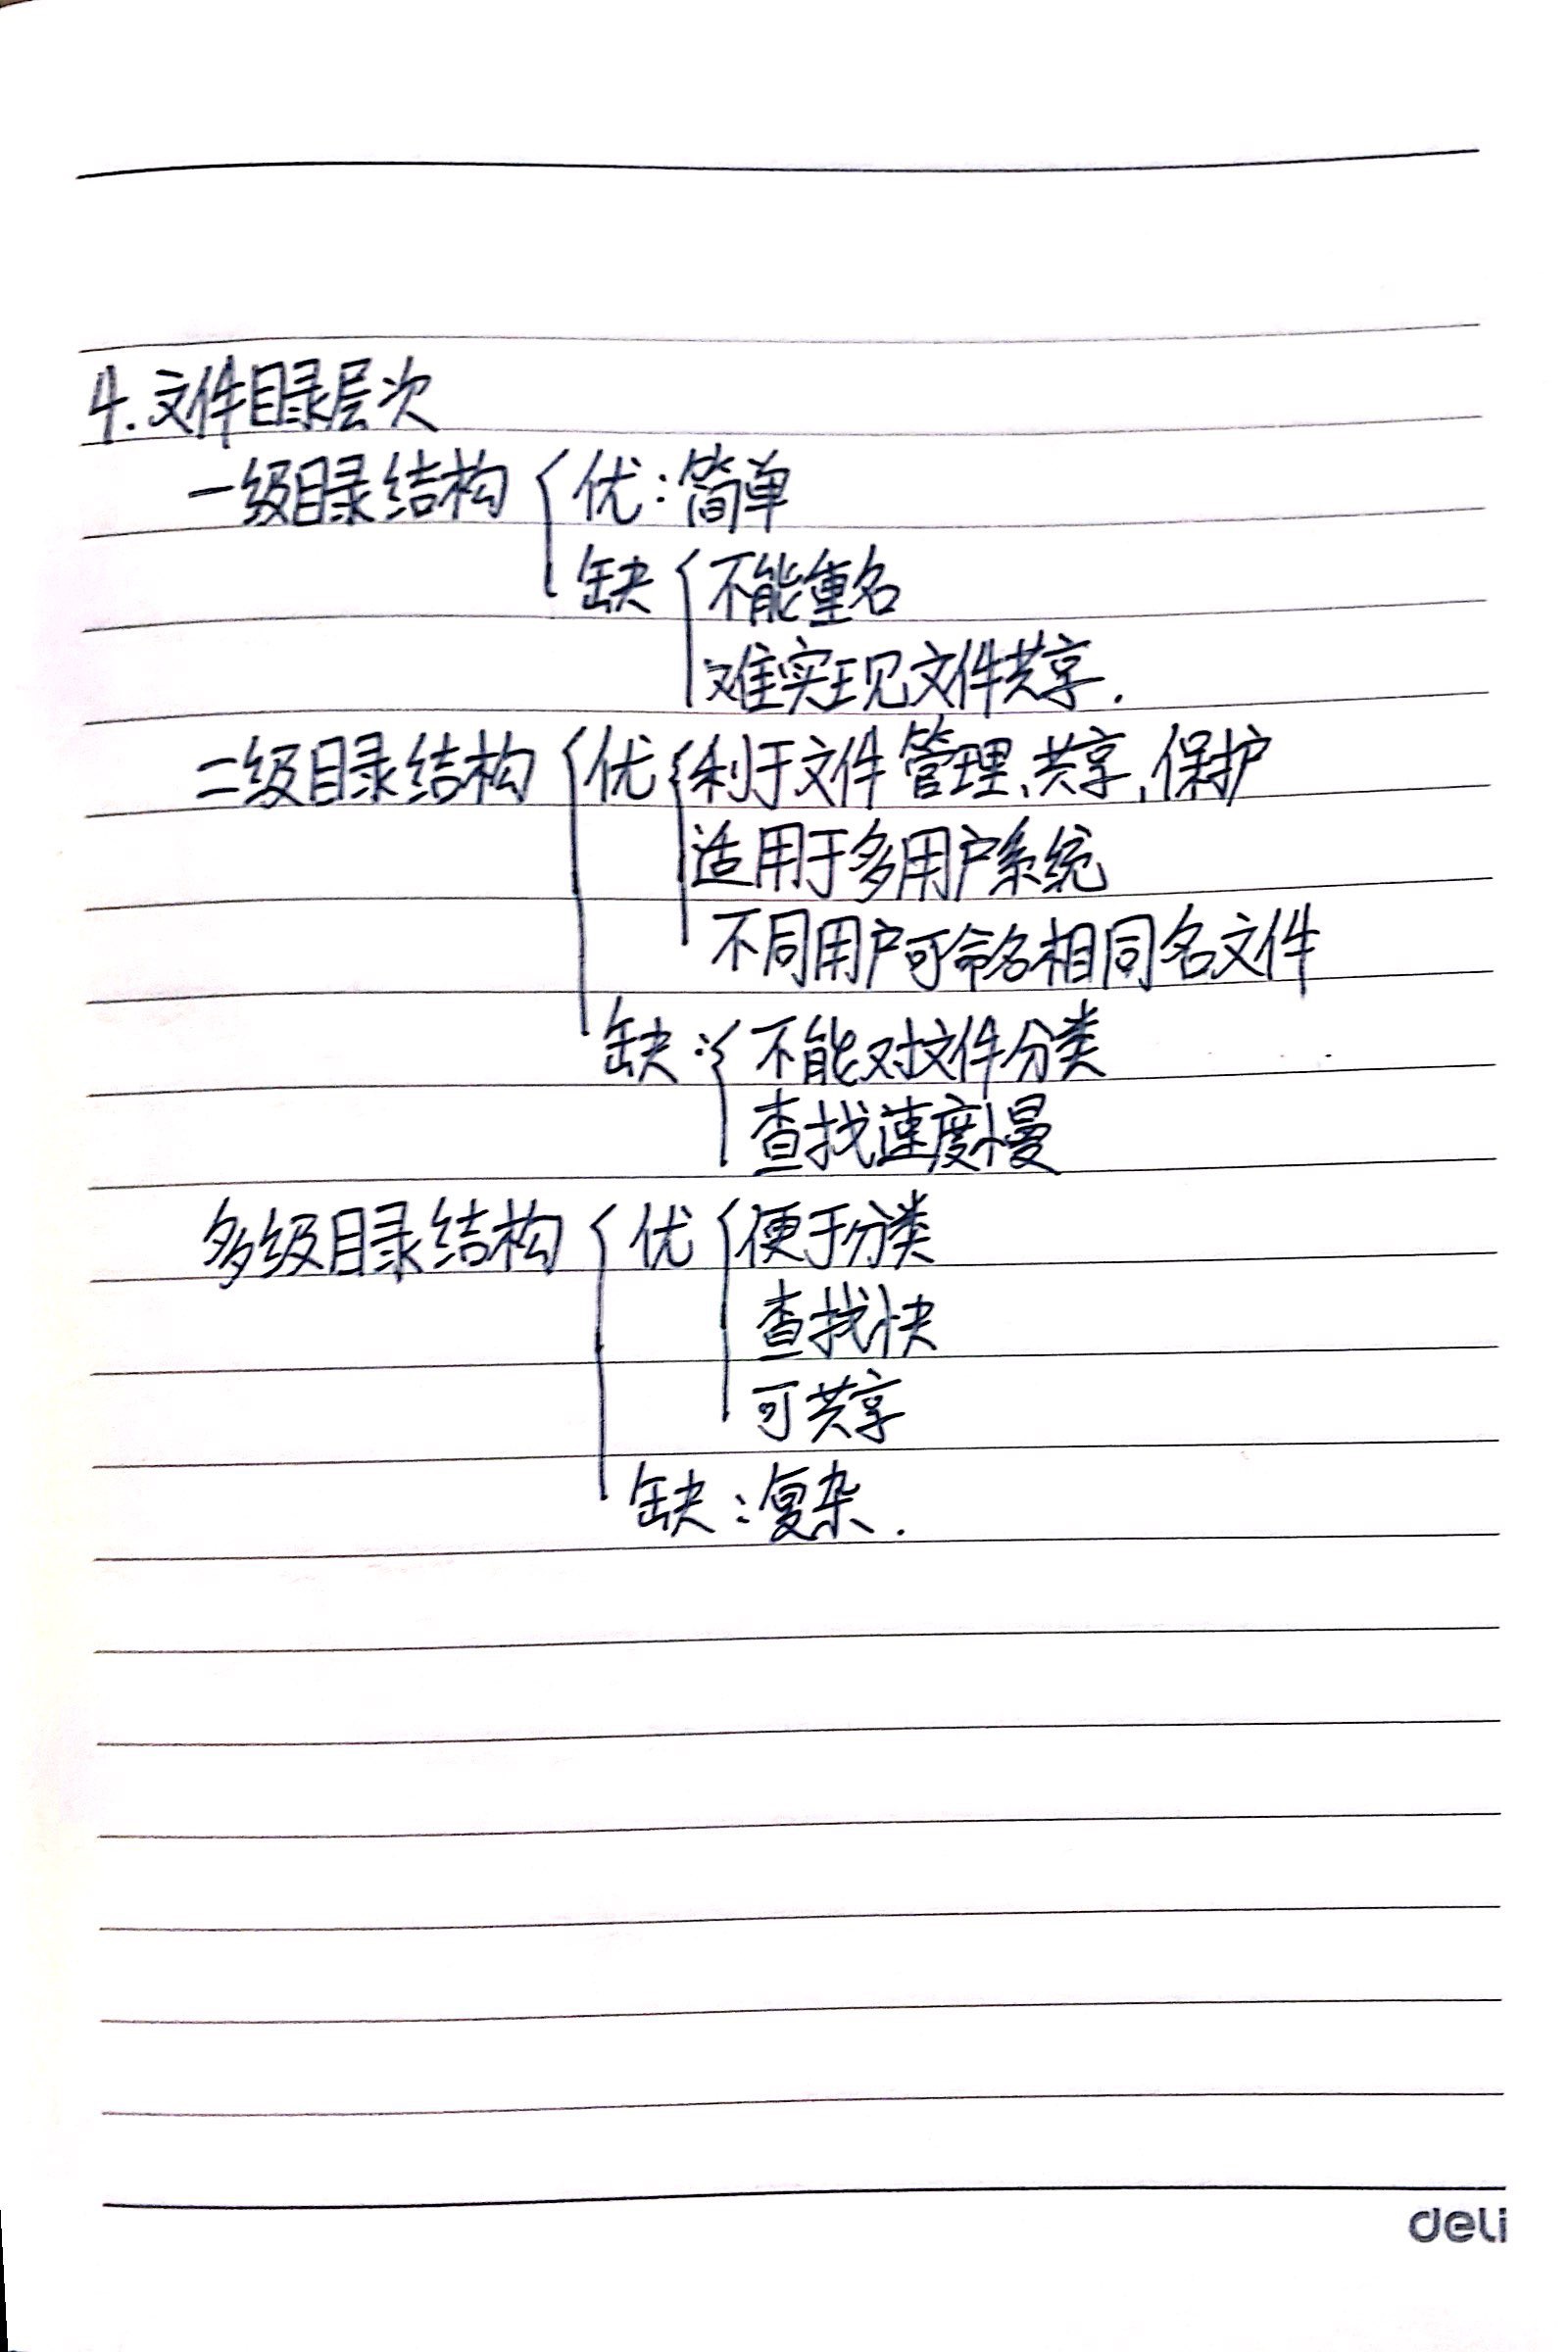 4.文件目录层次
一级目录结构 { 优:简单
缺 { 不能重名
难实现文件共享.
二级目录结构 { 优 { 利于文件管理、共享、保护
适用于多用户系统
不同用户可命名相同名文件
缺:{ 不能对文件分类
查找速度慢
多级目录结构 { 优 { 便于分类
查找快
可共享
缺:复杂.
deli